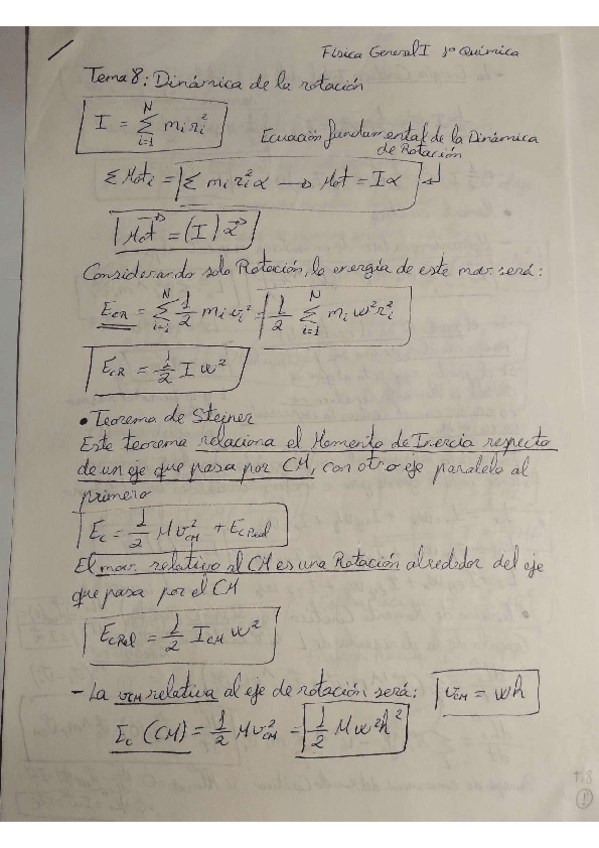 Física General I 1º Química
Tema 8: Dinámica de la rotación
I = N Σ i=1 mi ri²
Ecuación fundamental de la Dinámica
de Rotación
Σ Moti = Σ mi ri² α → Mot = Iα
Mot = (I) α
Considerando solo Rotación, la energía de este mov. será:
EcR = N Σ i=i 1/2 mi vi² = 1/2 N Σ i=1 mi w² ri²
EcR = 1/2 I w²
• Teorema de Steiner
Este teorema relaciona el Momento de Inercia respecto
de un eje que pasa por CM, con otro eje paralelo al
primero
Ec = 1/2 M v²CM + EcRel
El mov. relativo al CM es una Rotación alrededor del eje
que pasa por el CM
EcRel = 1/2 ICM w²
- La vCM relativa al eje de rotación será: vCM = wh
Ec (CM) = 1/2 M v²CM = 1/2 M w² h²
T.8
1